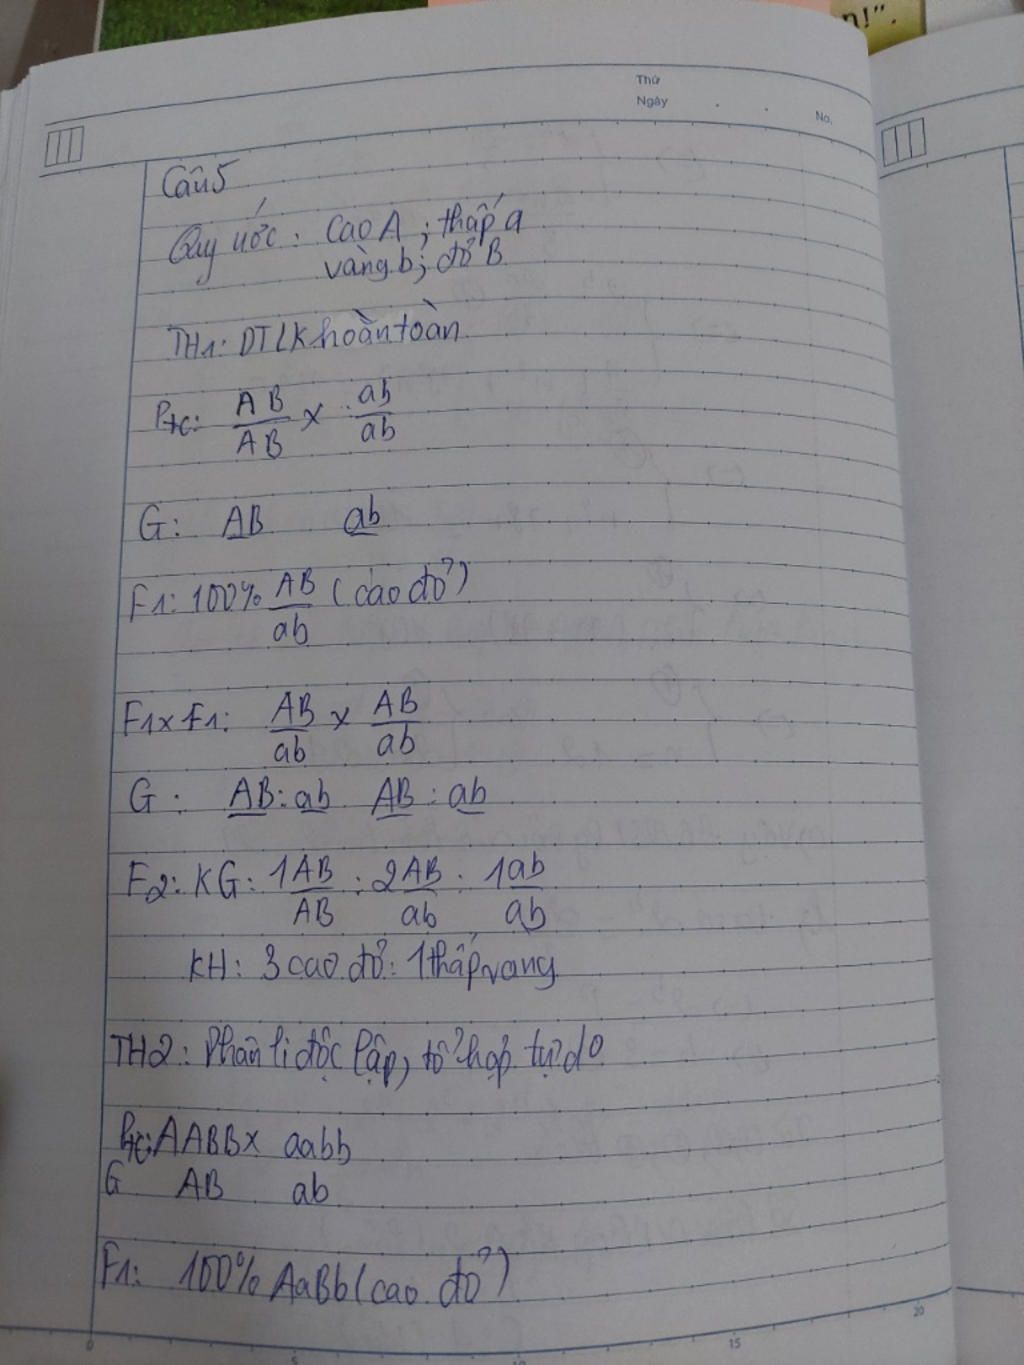 n!".
Thứ
Ngày
No.
Câu 5
Quy ước: Cao A; thấp a
vàng b; đỏ B
TH1: DTLK hoàn toàn
Ptc: AB/AB x ab/ab
G: AB ab
F1: 100% AB/ab (cao đỏ)
F1 x F1: AB/ab x AB/ab
G: AB: ab AB: ab
F2: KG: 1 AB/AB : 2 AB/ab : 1 ab/ab
KH: 3 cao đỏ: 1 thấp vang
TH2: Phân li độc lập, tổ hợp tự do
Ptc: AABB x aabb
G AB ab
F1: 100% AaBb (cao đỏ)
0 5 10 15 20